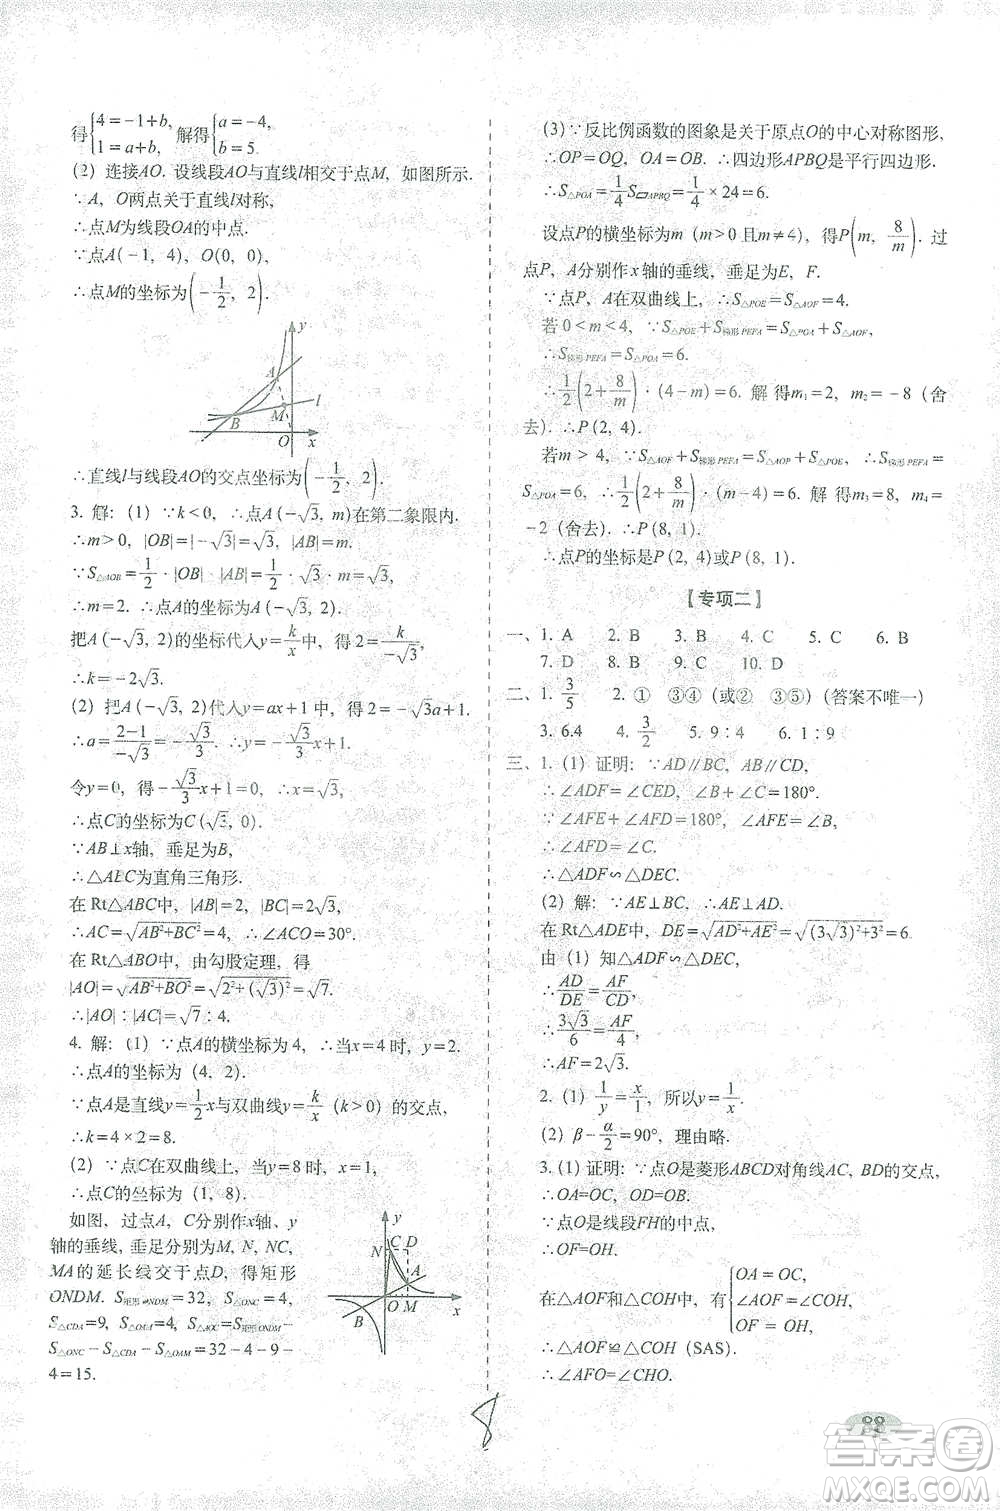 得{4=-1+b, 1=a+b, 解得{a=-4, b=5.
(2) 连接AO. 设线段AO与直线l相交于点M, 如图所示.
∵A, O两点关于直线l对称,
∴点M为线段OA的中点.
∵点A(-1, 4), O(0, 0),
∴点M的坐标为(-1/2, 2).
y
A
M
l
B
O
x
∴直线l与线段AO的交点坐标为(-1/2, 2).
3. 解: (1) ∵k<0, ∴点A(-√3, m)在第二象限内.
∴m>0, |OB|=|-√3|=√3, |AB|=m.
∵S△AOB=1/2·|OB|·|AB|=1/2×√3×m=√3.
∴m=2. ∴点A的坐标为A(-√3, 2).
把A(-√3, 2)的坐标代入y=k/x中, 得2=k/-√3.
∴k=-2√3.
(2) 把A(-√3, 2)代入y=ax+1中, 得2=-√3a+1.
∴a=2-1/-√3=-√3/3. ∴y=-√3/3x+1.
令y=0, 得-√3/3x+1=0.
∴点C的坐标为C(√3, 0).
∵AB⊥x轴, 垂足为B,
∴△ABC为直角三角形.
在Rt△ABC中, |AB|=2, |BC|=2√3.
∴AC=√AB²+BC²=4, ∴∠ACO=30°.
在Rt△ABO中, 由勾股定理, 得
|AO|=√AB²+BO²=√2²+(√3)²=√7.
∴|AO|∶|AC|=√7∶4.
4. 解: (1) ∵点A的横坐标为4, ∴当x=4时, y=2.
∴点A的坐标为(4, 2).
∵点A是直线y=1/2x与双曲线y=k/x (k>0)的交点,
∴k=4×2=8.
(2) ∵点C在双曲线上, 当y=8时, x=1.
∴点C的坐标为(1, 8).
如图, 过点A, C分别作x轴、y
轴的垂线, 垂足分别为M, N, NC,
MA的延长线交于点D, 得矩形
ONDM. S矩形ONDM=32, S△ONC=4,
S△CDA=9, S△OAM=4. S△AOC=S矩形ONDM-
S△ONC-S△CDA-S△OAM=32-4-9-
4=15.
y
N C D
A
O M x
B
(3) ∵反比例函数的图象是关于原点O的中心对称图形,
∴OP=OQ, OA=OB. ∴四边形APBQ是平行四边形.
∴S△POA=1/4S▱APBQ=1/4×24=6.
设点P的横坐标为m (m>0且m≠4), 得P(m, 8/m). 过
点P, A分别作x轴的垂线, 垂足为E, F.
∵点P, A在双曲线上, ∴S△POE=S△AOF=4.
若0<m<4, ∵S△POE+S梯形PEFA=S△POA+S△AOF,
∴S梯形PEFA=S△POA=6.
∴1/2(2+8/m)·(4-m)=6. 解得m₁=2, m₂=-8(舍
去). ∴P(2, 4).
若m>4, ∵S△AOF+S梯形PEFA=S△AOP+S△POE, ∴S梯形PEFA=
S△POA=6, ∴1/2(2+8/m)·(m-4)=6. 解得m₃=8, m₄=
-2(舍去). ∴P(8, 1).
∴点P的坐标是P(2, 4)或P(8, 1).
【专项二】
一、1. A 2. B 3. B 4. C 5. C 6. B
7. D 8. B 9. C 10. D
二、1. 3/5 2. ① ③④ (或② ③⑤) (答案不唯一)
3. 6.4 4. 3/2 5. 9∶4 6. 1∶9
三、1. (1) 证明: ∵AD∥BC, AB∥CD,
∴∠ADF=∠CED, ∠B+∠C=180°.
∵∠AFE+∠AFD=180°, ∠AFE=∠B,
∴∠AFD=∠C.
∴△ADF∽△DEC.
(2) 解: ∵AE⊥BC, ∴AE⊥AD.
在Rt△ADE中, DE=√AD²+AE²=√(3√3)²+3²=6.
由(1)知△ADF∽△DEC,
∴AD/DE=AF/CD,
∴3√3/6=AF/4
∴AF=2√3.
2. (1) 1/y=x/1, 所以y=1/x.
(2) β-α/2=90°, 理由略.
3. (1) 证明: ∵点O是菱形ABCD对角线AC, BD的交点,
∴OA=OC, OD=OB.
∵点O是线段FH的中点,
∴OF=OH.
在△AOF和△COH中, 有{OA=OC, ∠AOF=∠COH, OF=OH,
∴△AOF≌△COH (SAS).
∴∠AFO=∠CHO.
8
答案圈
MXQE.COM